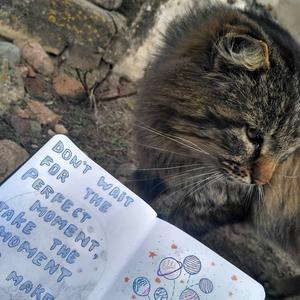 DON'T WAIT
FOR THE
PERFECT
MOMENT,
TAKE THE
MOMENT
MAKE